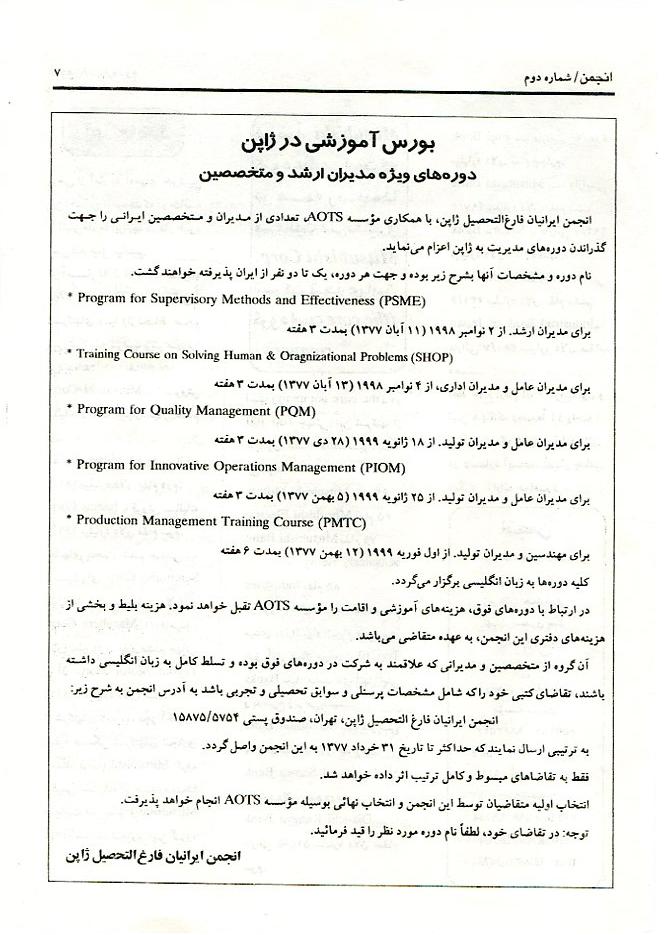 انجمن/ شماره دوم
۷
بورس آموزشی در ژاپن
دوره‌های ویژه مدیران ارشد و متخصصین
انجمن ایرانیان فارغ‌التحصیل ژاپن، با همکاری مؤسسه AOTS، تعدادی از مدیران و متخصصین ایرانی را جهت
گذراندن دوره‌های مدیریت به ژاپن اعزام می‌نماید.
نام دوره و مشخصات آنها بشرح زیر بوده و جهت هر دوره، یک تا دو نفر از ایران پذیرفته خواهند گشت.
* Program for Supervisory Methods and Effectiveness (PSME)
برای مدیران ارشد. از ۲ نوامبر ۱۹۹۸ (۱۱ آبان ۱۳۷۷) بمدت ۳ هفته
* Training Course on Solving Human & Oragnizational Problems (SHOP)
برای مدیران عامل و مدیران اداری، از ۴ نوامبر ۱۹۹۸ (۱۳ آبان ۱۳۷۷) بمدت ۳ هفته
* Program for Quality Management (PQM)
برای مدیران عامل و مدیران تولید. از ۱۸ ژانویه ۱۹۹۹ (۲۸ دی ۱۳۷۷) بمدت ۳ هفته
* Program for Innovative Operations Management (PIOM)
برای مدیران عامل و مدیران تولید. از ۲۵ ژانویه ۱۹۹۹ (۵ بهمن ۱۳۷۷) بمدت ۳ هفته
* Production Management Training Course (PMTC)
برای مهندسین و مدیران تولید. از اول فوریه ۱۹۹۹ (۱۲ بهمن ۱۳۷۷) بمدت ۶ هفته
کلیه دوره‌ها به زبان انگلیسی برگزار می‌گردد.
در ارتباط با دوره‌های فوق، هزینه‌های آموزشی و اقامت را مؤسسه AOTS تقبل خواهد نمود. هزینه بلیط و بخشی از
هزینه‌های دفتری این انجمن، به عهده متقاضی می‌باشد.
آن گروه از متخصصین و مدیرانی که علاقمند به شرکت در دوره‌های فوق بوده و تسلط کامل به زبان انگلیسی داشته
باشند، تقاضای کتبی خود را که شامل مشخصات پرسنلی و سوابق تحصیلی و تجربی باشد به آدرس انجمن به شرح زیر:
انجمن ایرانیان فارغ التحصیل ژاپن، تهران، صندوق پستی ۱۵۸۷۵/۵۷۵۴
به ترتیبی ارسال نمایند که حداکثر تا تاریخ ۳۱ خرداد ۱۳۷۷ به این انجمن واصل گردد.
فقط به تقاضاهای مبسوط و کامل ترتیب اثر داده خواهد شد.
انتخاب اولیه متقاضیان توسط این انجمن و انتخاب نهائی بوسیله مؤسسه AOTS انجام خواهد پذیرفت.
توجه: در تقاضای خود، لطفاً نام دوره مورد نظر را قید فرمائید.
انجمن ایرانیان فارغ‌التحصیل ژاپن